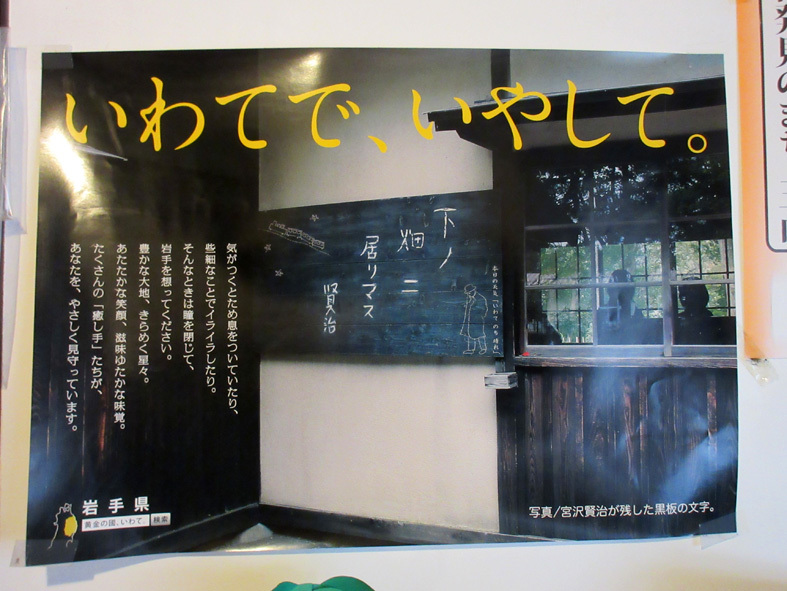 いわてで、いやして。
下ノ
畑ニ
居リマス
賢治
気がつくとため息をついていたり、
些細なことでイライラしたり。
そんなときは瞳を閉じて、
岩手を想ってください。
豊かな大地、きらめく星々。
あたたかな笑顔、滋味ゆたかな味覚。
たくさんの「癒し手」たちが、
あなたを、やさしく見守っています。
岩手県
黄金の國、いわて。 検索
写真/宮沢賢治が残した黒板の文字。